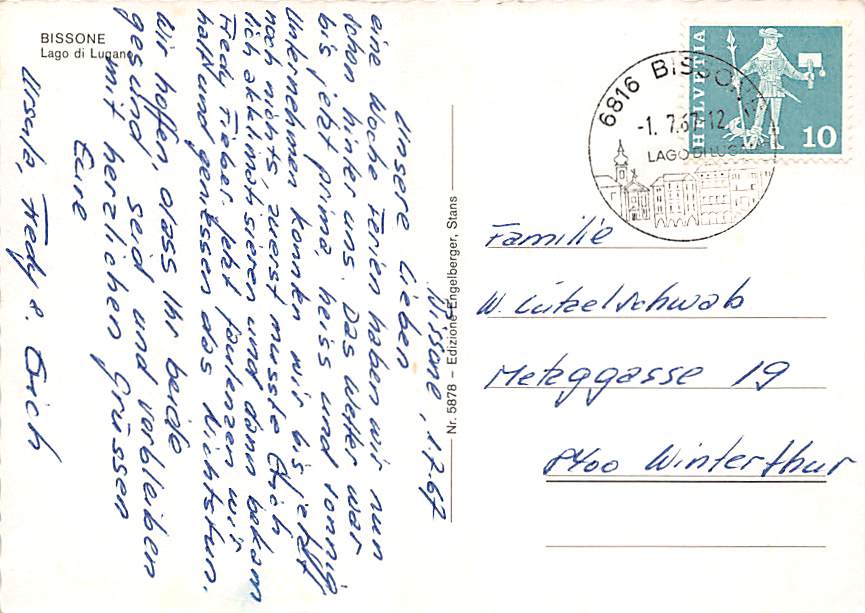 BISSONE
Lago di Lugano
Bissone, 1.7.67
Unsere Lieben
eine Woche Ferien haben wir nun
schon hinter uns. Das Wetter war
bis jetzt prima, heiss und sonnig
Unternehmen konnten wir bis jetzt
noch nichts, zuerst musste Erich
sich akklimatisieren und dann bekam
Fredy Fieber. Jetzt faulenzen wir
halt und geniessen das Nichtstun.
Wir hoffen, dass Ihr beide
gesund seid und verbleiben
mit herzlichen Grüssen
Eure
Ursula, Fredy & Erich
Nr. 5878 – Edizione Engelberger, Stans
6816 BISSONE
-1. 7.67-12
LAGO DI LUGANO
HELVETIA
10
Familie
W. Lützelschwab
Metzggasse 19
8400 Winterthur